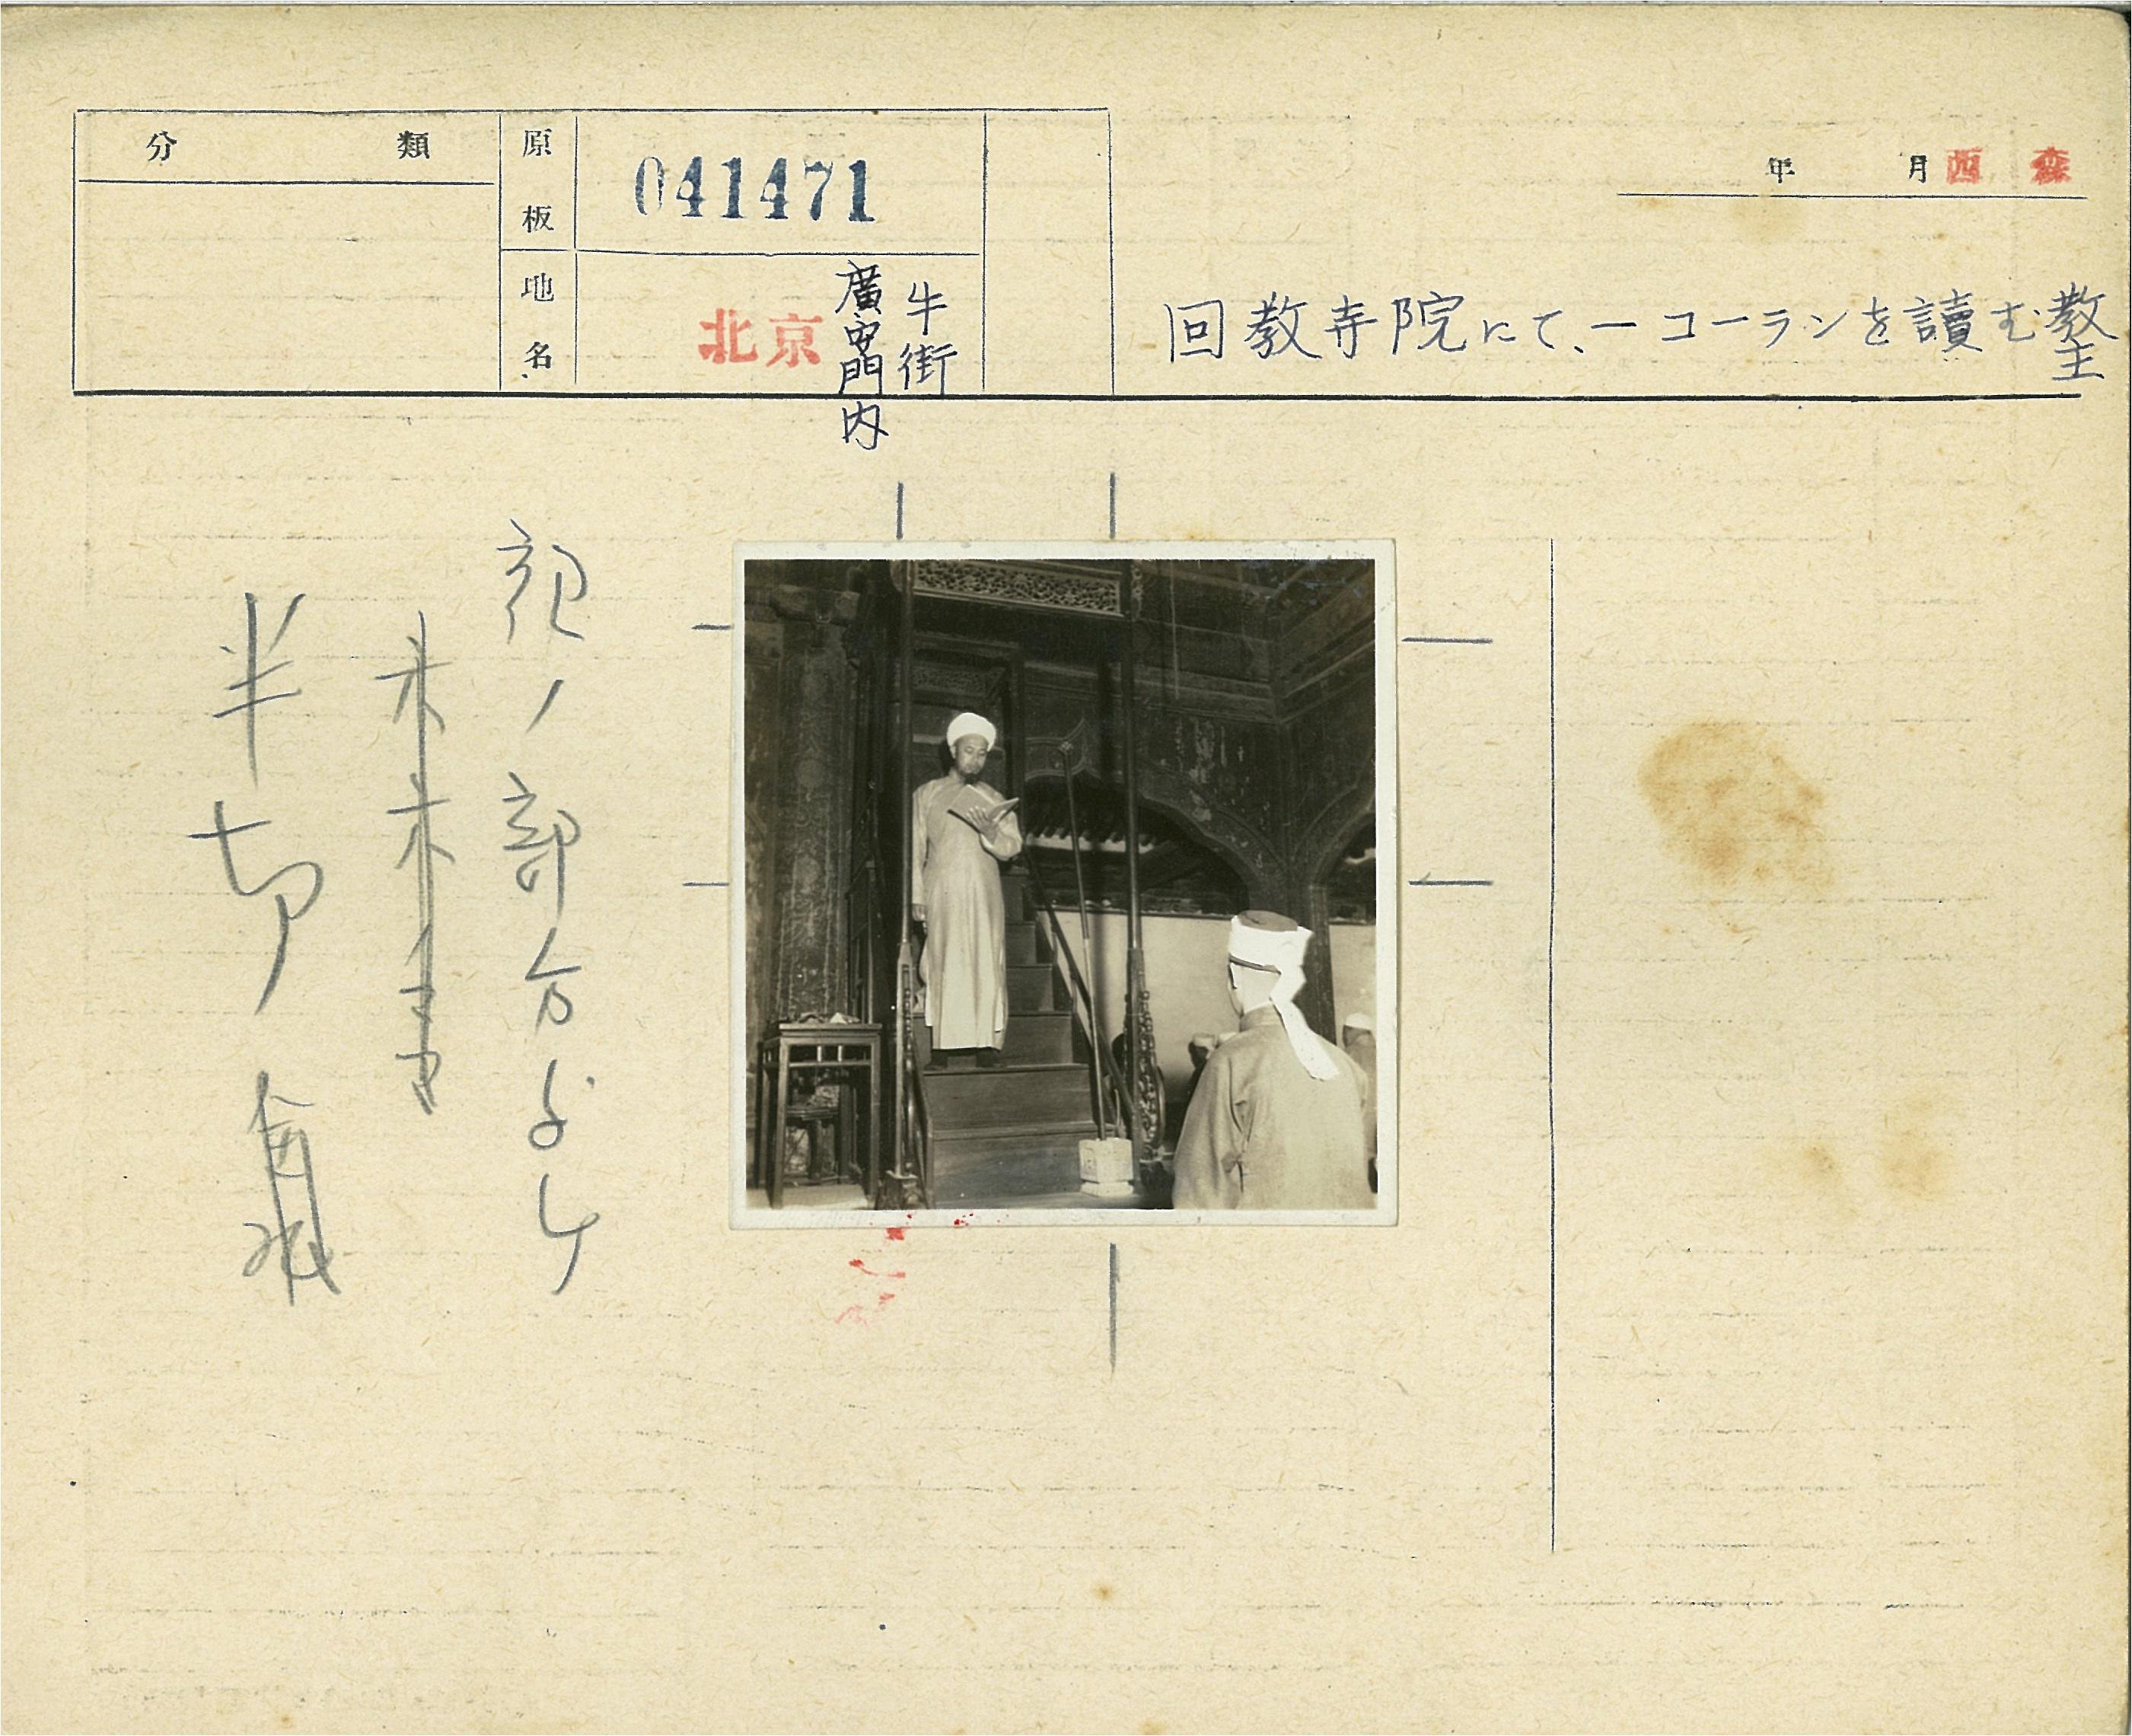 分類
原板
041471
地名
北京
牛街
廣安門内
年 月
西森
回教寺院にて、ーコーランを讀む教主
ノ部分
半切